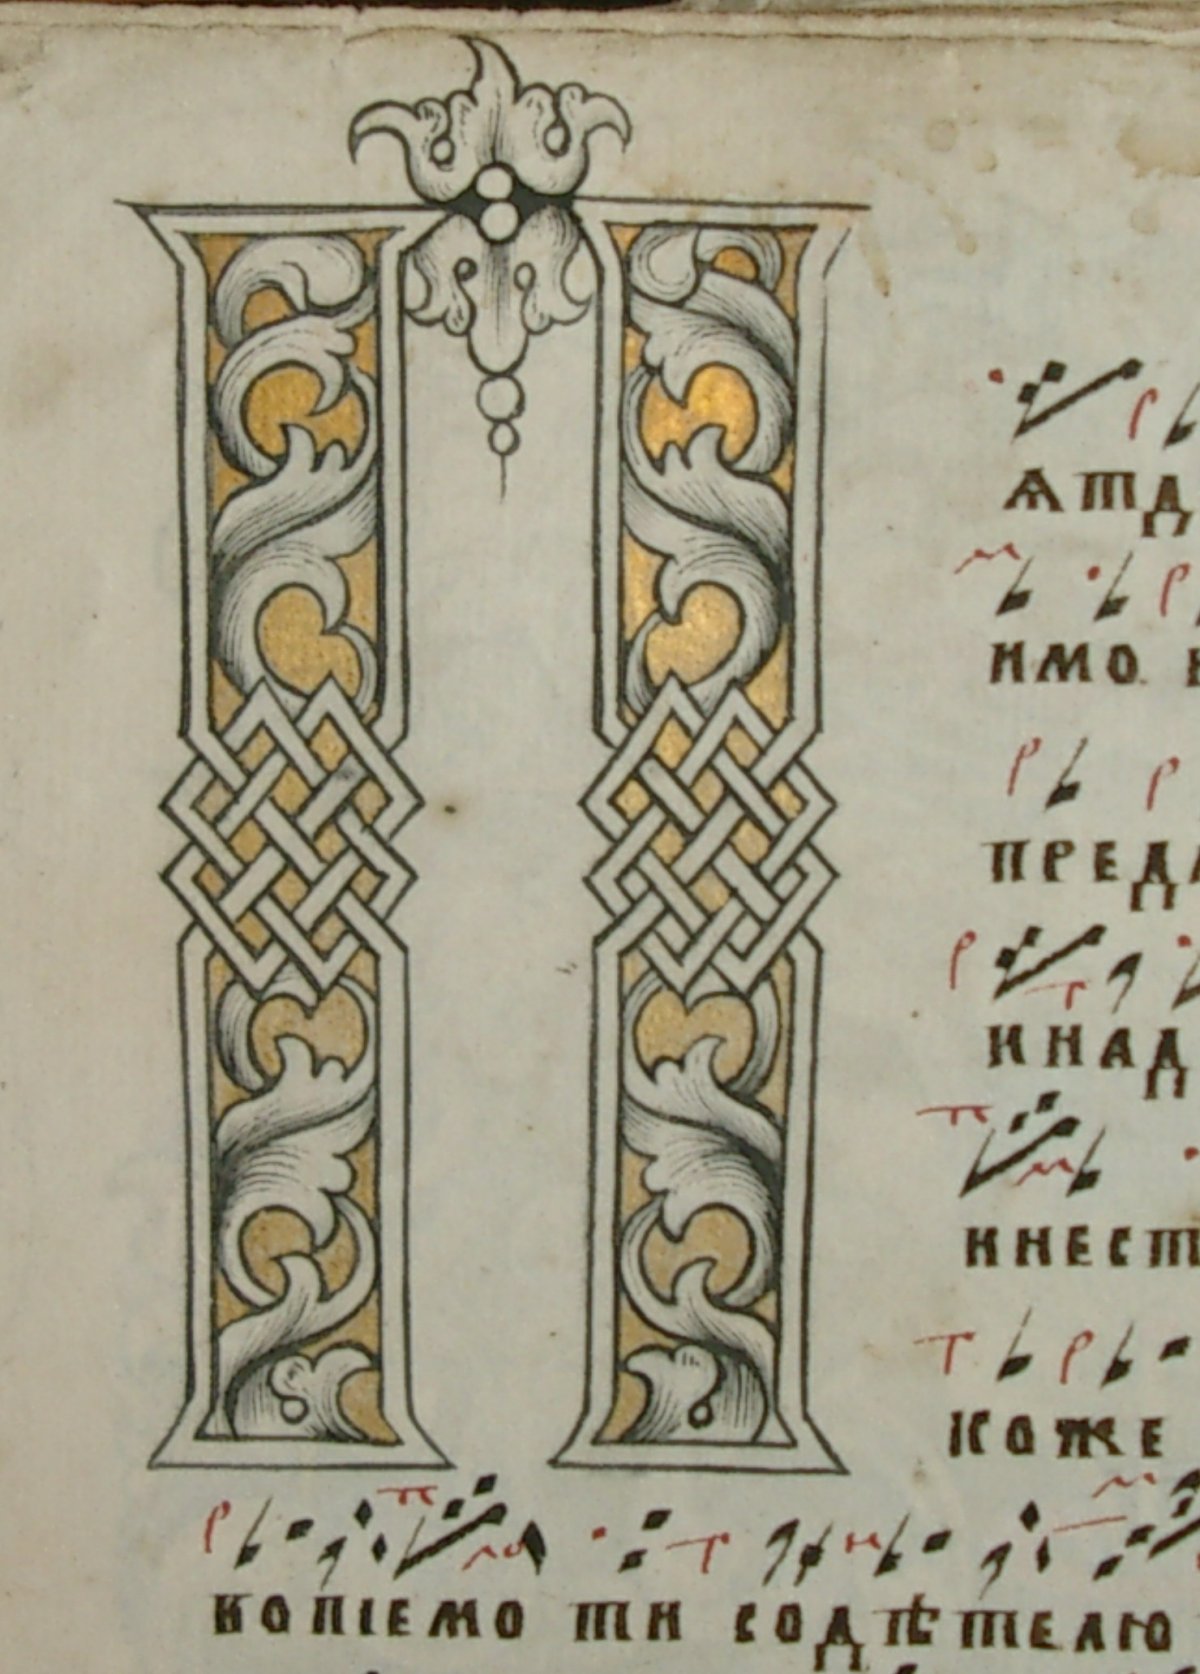 П
ѧтд
имо и
преда
инад
инест
коже
вопіемо ти содѣтелю